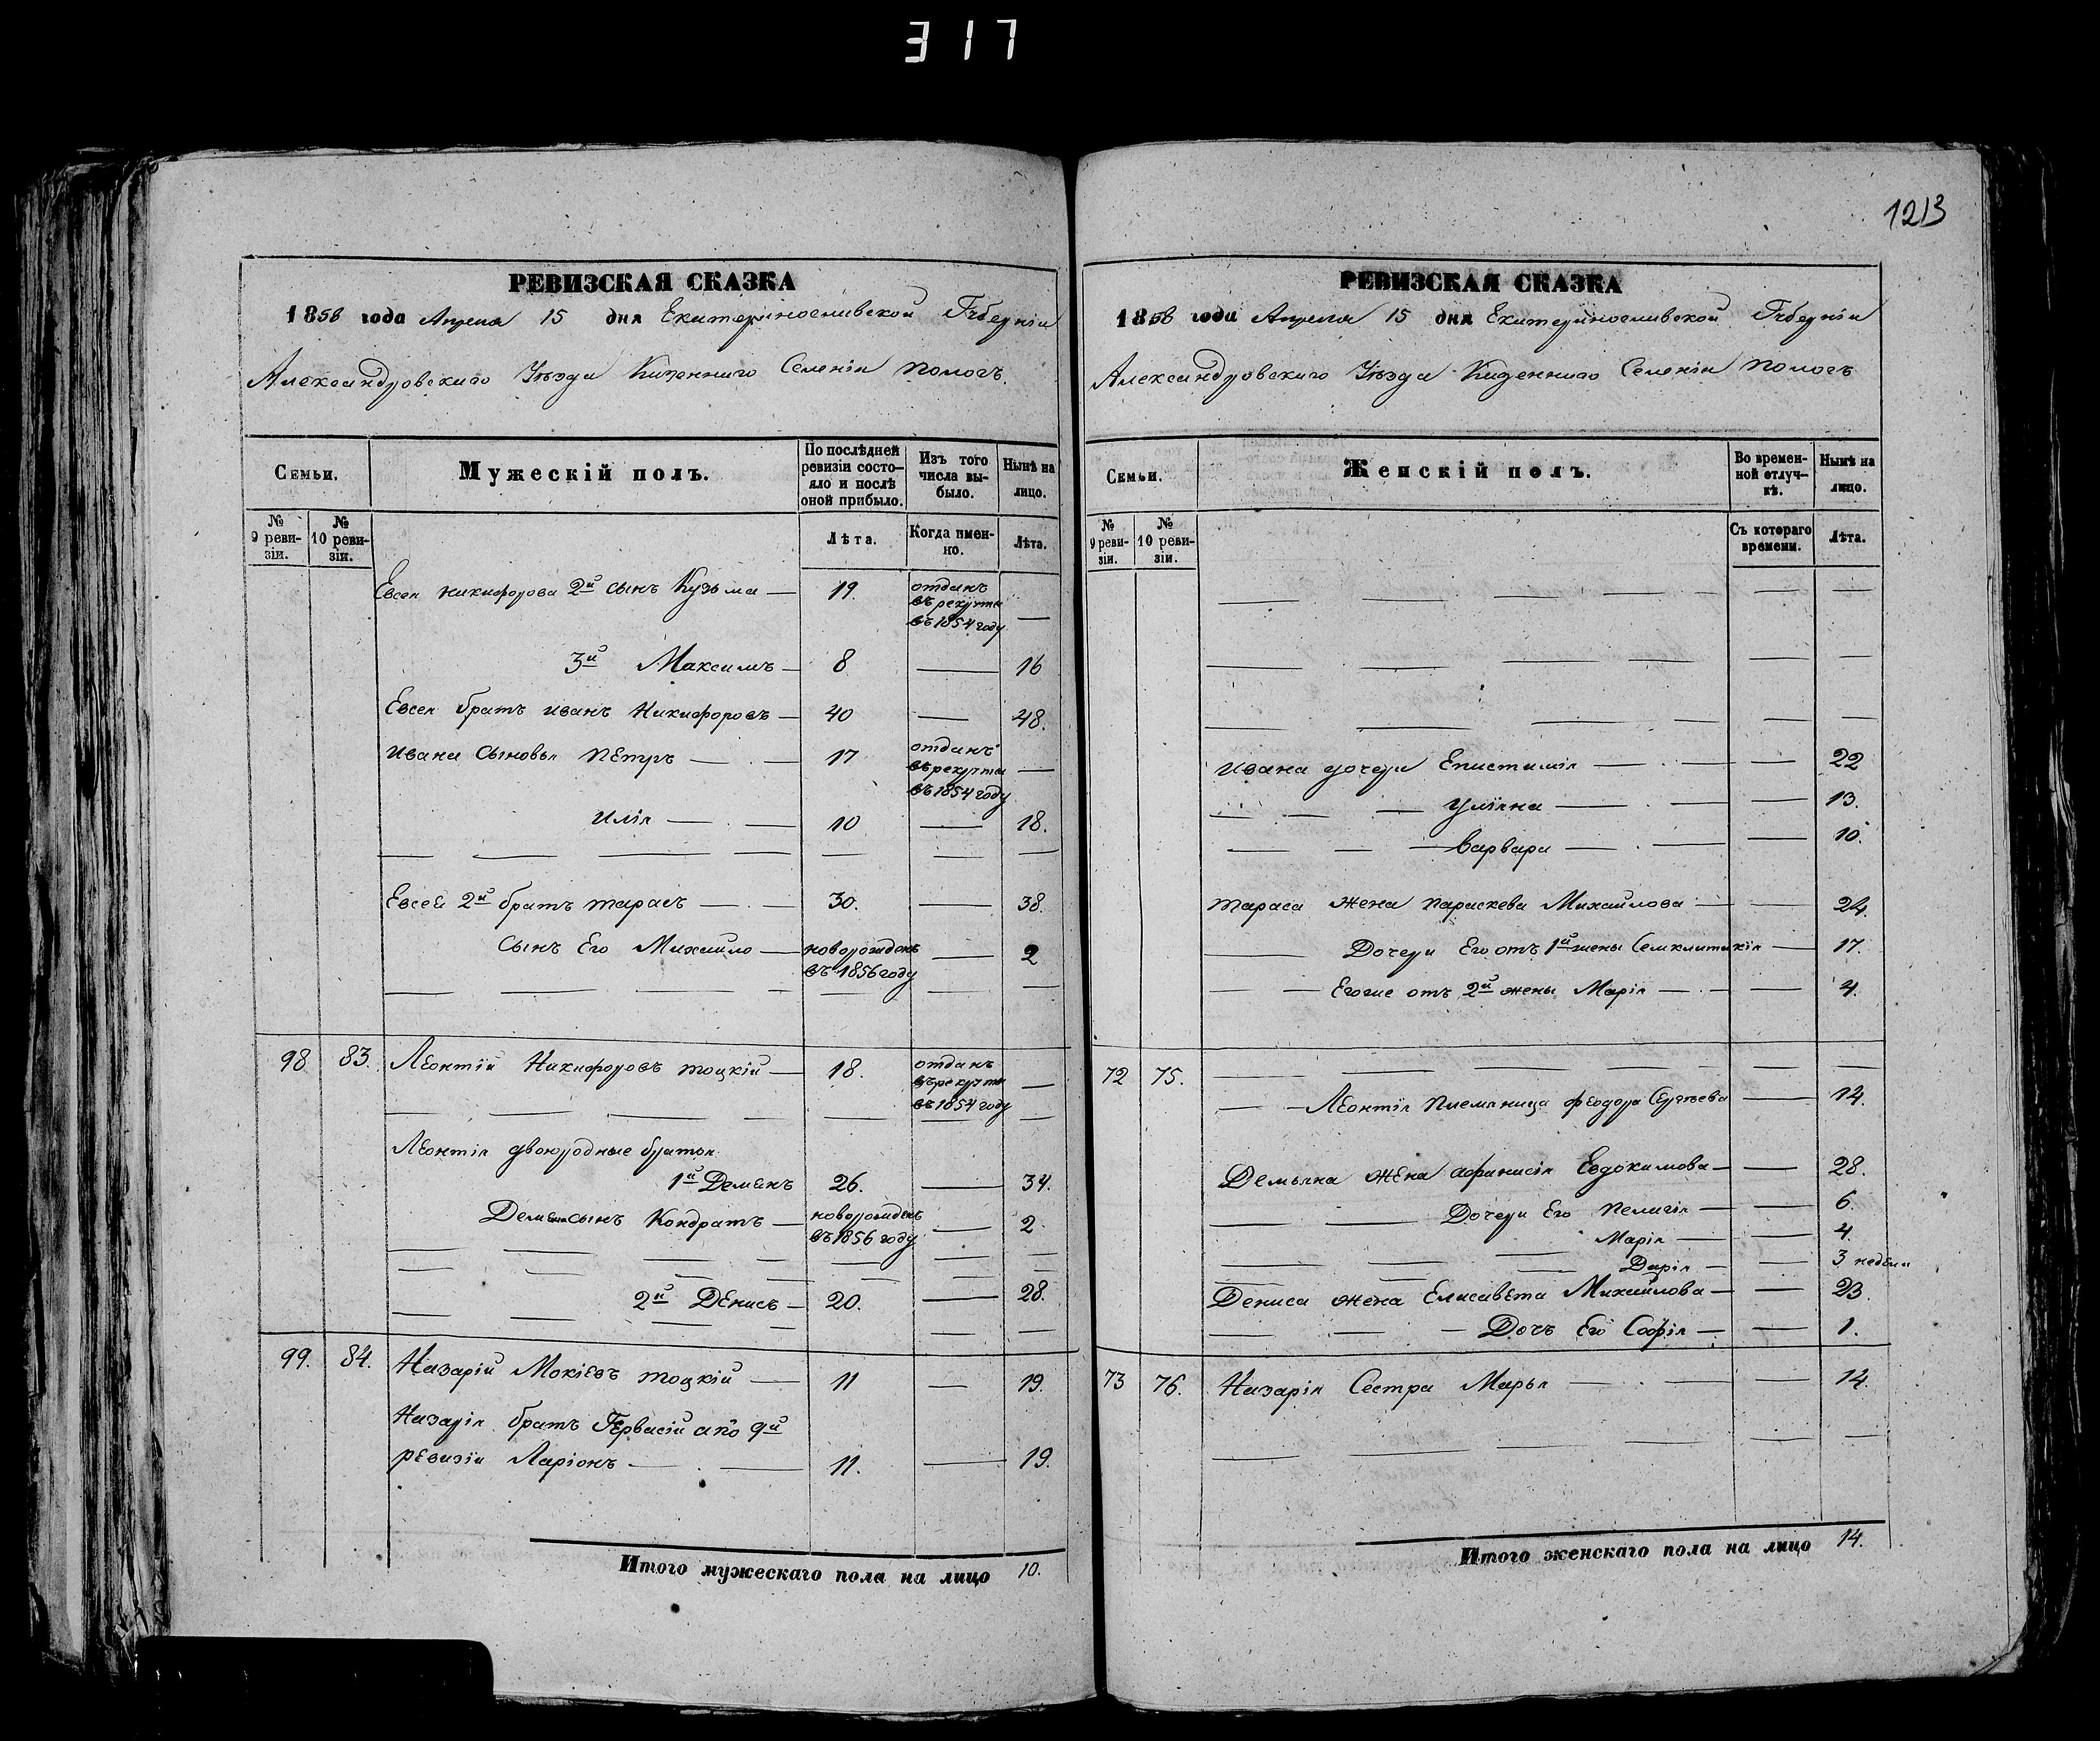 317
1213
РЕВИЗСКАЯ СКАЗКА
1858 года Апреля 15 дня Екатеринославской Губерніи
Александровскаго Уѣзда Казеннаго Селенія Пологъ.
Семьи.
Мужескій полъ.
По послѣдней ревизіи состояло и послѣ оной прибыло.
Изъ того числа выбыло.
Нынѣ на лицо.
№ 9 ревизіи.
№ 10 ревизіи.
Лѣта.
Когда именно.
Лѣта.
Евсея Никифорова 2й сынъ Кузьма — 19. отданъ въ рекруты въ 1854 году —
3й Максимъ — 8 — 16
Евсея братъ Иванъ Никифоровъ — 40 — 48.
Ивана сыновья Петръ — 17 отданъ въ рекруты въ 1854 году —
Илія — 10 — 18.
Евсея 2й братъ Тарасъ — 30. — 38.
сынъ Его Михайло — новорожденъ въ 1856 году — 2
98 83. Леонтій Никифоровъ Тоцкій — 18. отданъ въ рекруты въ 1854 году —
Леонтія двоюродные братья
1й Деменъ 26. — 34.
Демена сынъ Кондратъ — новорожденъ въ 1856 году — 2.
2й Денисъ — 20. — 28.
99. 84. Назарій Мокіевъ Тоцкій — 11 — 19.
Назарія братъ Гервасій а по 9й
ревизіи Ларіонъ — 11. — 19.
Итого мужескаго пола на лицо 10.
РЕВИЗСКАЯ СКАЗКА
1858 года Апреля 15 дня Екатеринославской Губерніи
Александровскаго Уѣзда Казеннаго Селенія Пологъ
Семьи.
Женскій полъ.
Во временной отлучкѣ.
Нынѣ на лицо.
№ 9 ревизіи.
№ 10 ревизіи.
Съ котораго времени.
Лѣта.
Ивана дочери Епистимія — 22
Уліяна — 13.
Варвара — 10.
Тараса жена Параскева Михайлова — 24.
Дочери Его отъ 1й жены — 17.
Егоже отъ 2й жены Марія — 4.
72 75.
Леонтія племяница Феодора Сергѣева — 14.
Демьяна жена Афанасія Евдокимова — 28.
Дочери Его Пелагія — 6.
Марія — 4.
Дарія — 3 недели
Дениса жена Елисавета Михайлова — 23.
Дочъ Его Софія — 1.
73 76. Назарія Сестра Марья — 14.
Итого женскаго пола на лицо 14.